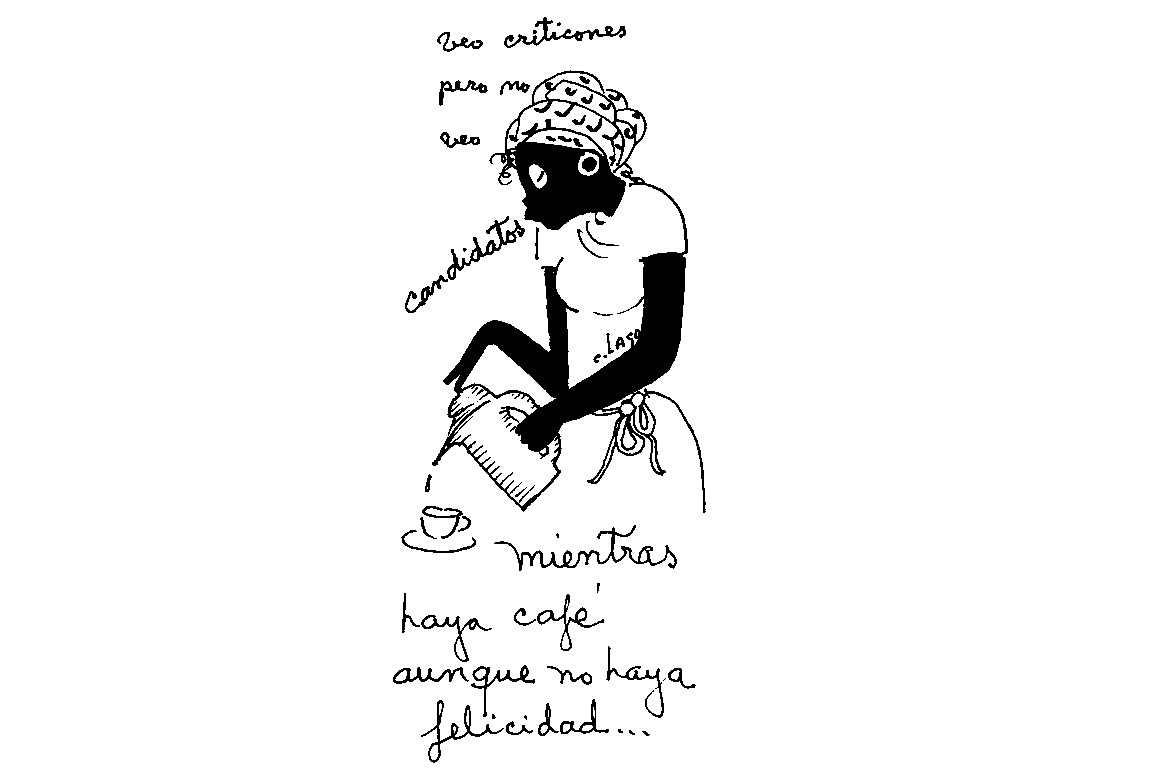 veo criticones
pero no
veo
candidatos
c. LAGO
mientras
haya café
aunque no haya
felicidad...